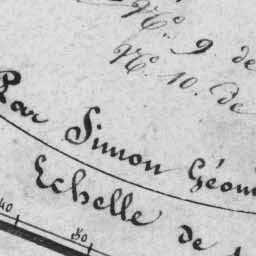 N.º 9. de
N.º 10. de
Par Simon Géom
Echelle de
40 50